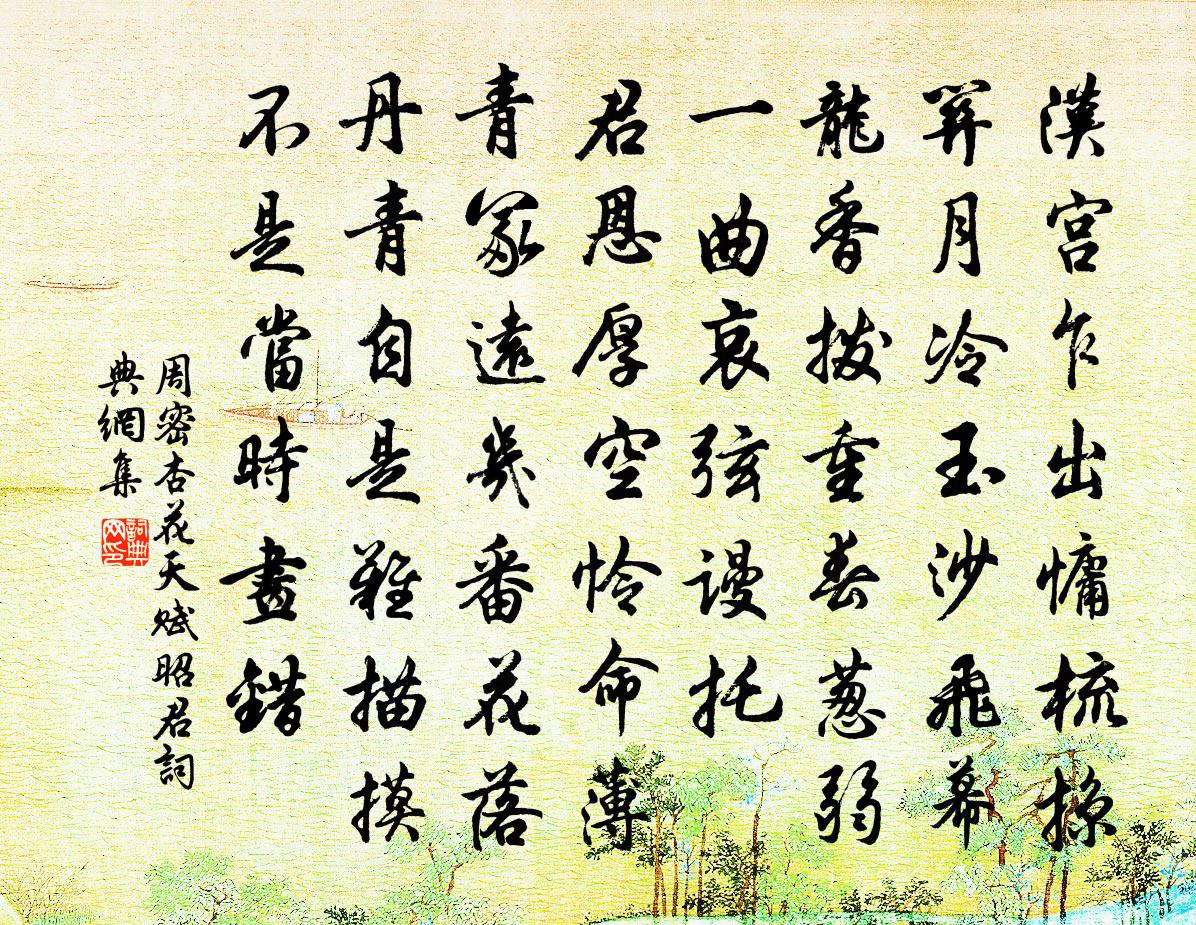 漢宮乍出慵梳掠
關月冷玉沙飛幕
龍香撥重春葱弱
一曲哀弦謾托
君恩厚空怜命薄
青冢遠幾番花落
丹青自是難描摸
不是當時畫錯
周密杏花天賦昭君詞
典網集
詞典網印